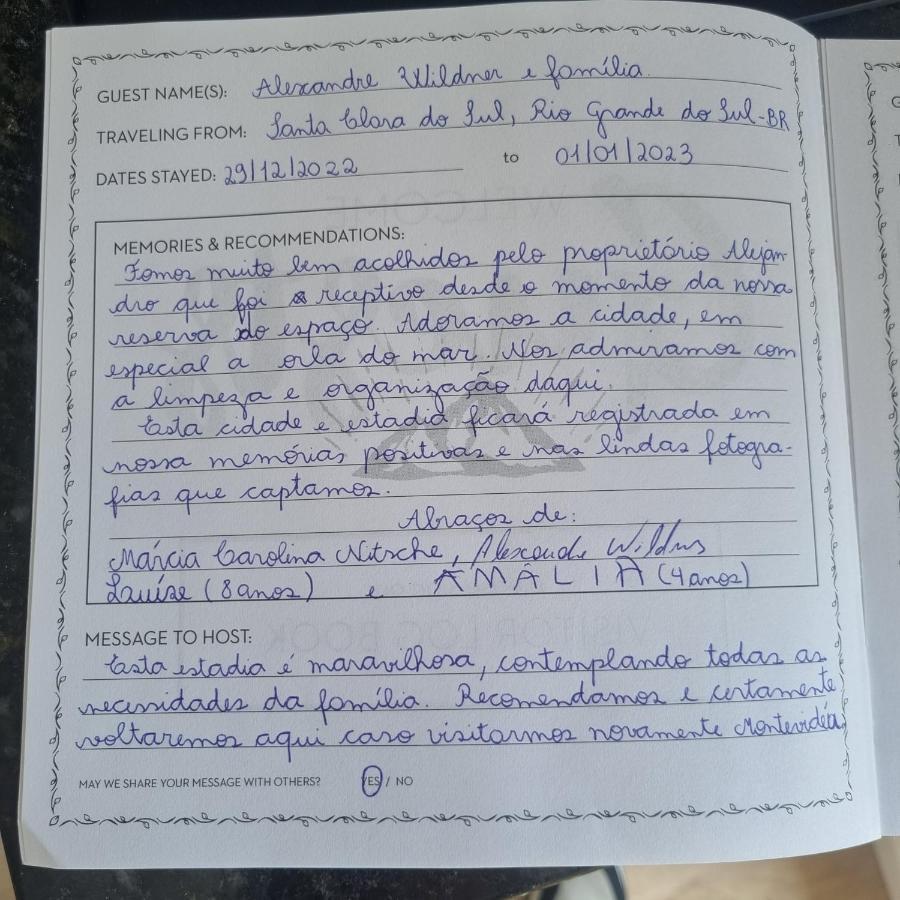 GUEST NAME(S): Alexandre Wildner e família.
TRAVELING FROM: Santa Clara do Sul, Rio Grande do Sul-BR
DATES STAYED: 29/12/2022 to 01/01/2023
MEMORIES & RECOMMENDATIONS:
Fomos muito bem acolhidos pelo proprietário Alejan
dro que foi receptivo desde o momento da nossa
reserva do espaço. Adoramos a cidade, em
especial a orla do mar. Nos admiramos com
a limpeza e organização daqui.
Esta cidade e estadia ficará registrada em
nossa memórias positivas e nas lindas fotogra-
fias que captamos.
Abraços de:
Márcia Carolina Nitsche, Alexandre Wildner
Lauíse (8 anos) e AMÁLIA (4 anos)
MESSAGE TO HOST:
Esta estadia é maravilhosa, contemplando todas as
necessidades da família. Recomendamos e certamente
voltaremos aqui caso visitarmos novamente Montevidéu.
MAY WE SHARE YOUR MESSAGE WITH OTHERS? YES / NO